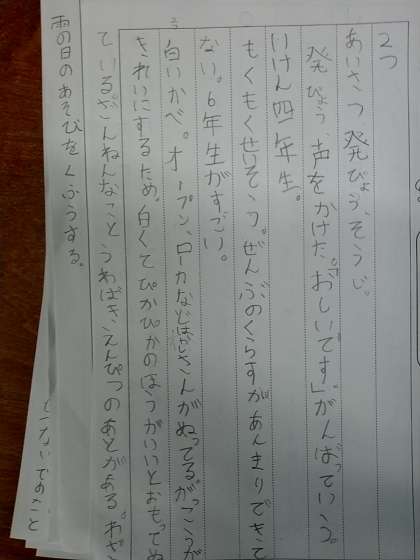 2つ
あいさつ、発ぴょう、そうじ。
発ぴょう、声をかけた。「おしいです」がんばっていう。
いけん四年生。
もくもくせいそう。ぜんぶのくらすがあんまりできて
ない。6年生がすごい。
白いかべ。オープン、ローカなど さんがぬってるがっこうが
きれいにするため。白くてぴかぴかのほうがいいとおもってぬ
ている。ざんねんなこと うわばき、えんぴつのあとがある。わざ
雨の日のあそびをくふうする。
ないでのこと